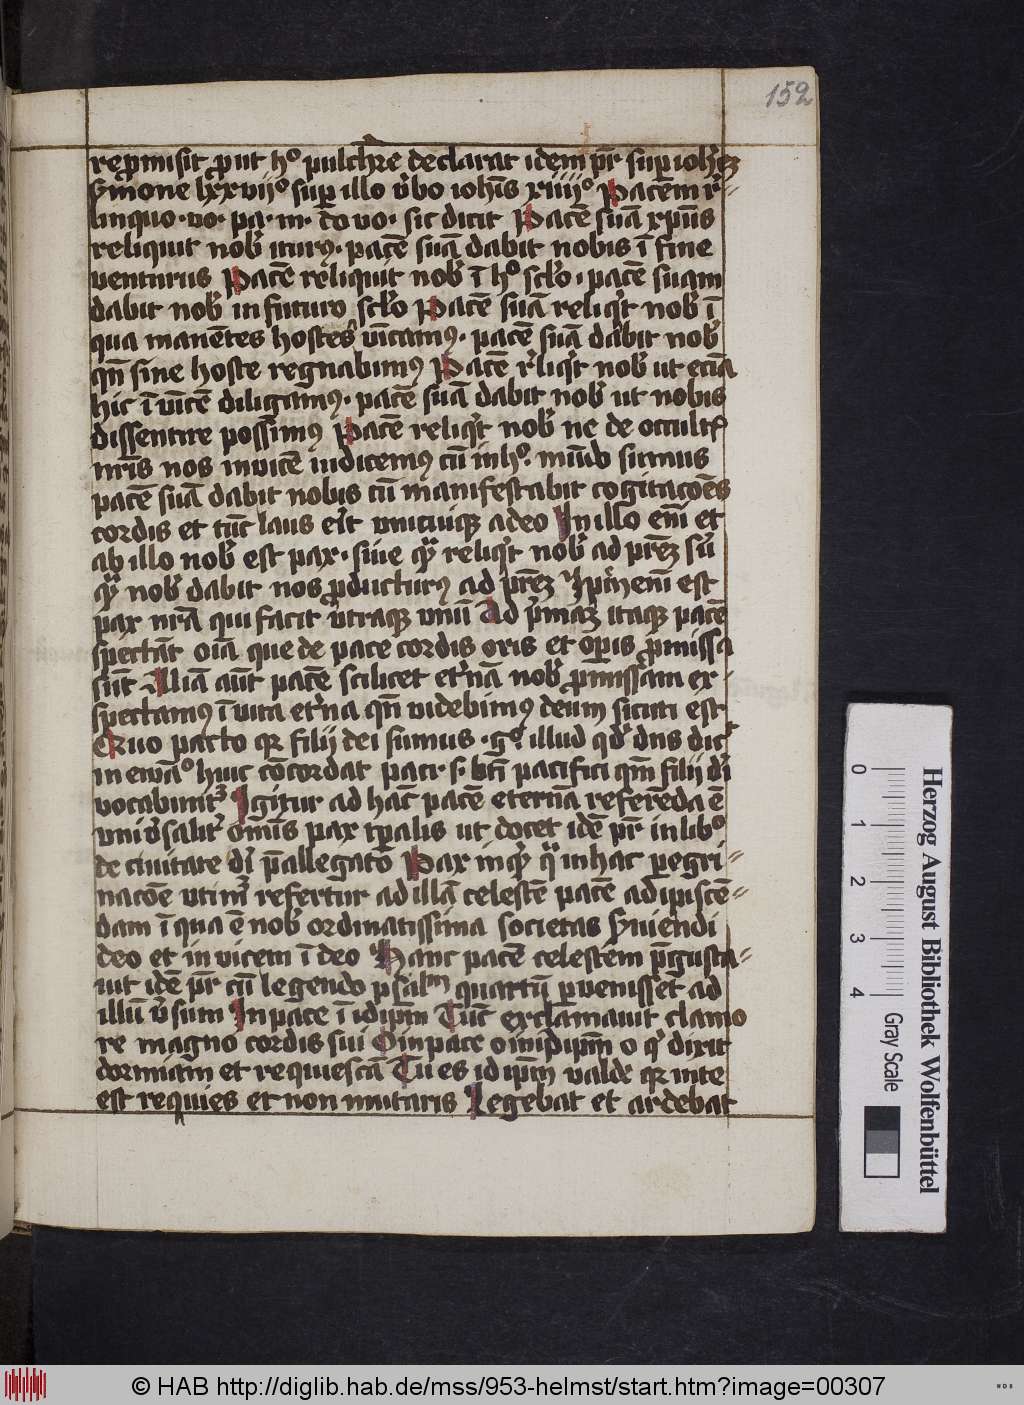 152
repͥmisit ꝓut hͦ pulchre declarat idem pr̄ suꝑ ioh'eꝫ
Smone lxxvijͦ suꝑ illo v̓bo ioh̄is xiiijͦ Pacem r̓=
linquo · vo · pa · m · do vo · sic dicit Pacē suā xp̄us
reliquit nob̓ iturꝰ · pacē suā dabit nobis ī fine
venturus Pacē reliquit nob̓ ī hͦ sclo̓ · pacē suam
dabit nob̓ in futuro sclo̓ Pacē suā reliqt̓ nob̓ ī
qua manētes hostes vīcamꝰ · pacē suā dabit nob̓
qn̄ sine hoste regnabimꝰ Pacē r̓liqt̓ nob̓ ut eciā
hic ī vicē diligamꝰ · pacē suā dabit nob̓ ut nobis
dissentire possimꝰ Pacē reliqt̓ nob̓ ne de occult̓
nr̄is nos invicē iudicemꝰ cū in hͦ · mūdo sumus
pacē suā dabit nobis cū manifestabit cogitacōes
cordis et tūc laus er̓t unicuiqꝫ a deo In illo em̄ et
ab illo nob̓ est pax · siue qͣ reliqt̓ nob̓ ad pr̄eꝫ su̓
qͣ nob̓ dabit nos ꝓducturꝰ ad pr̄eꝫ Ip̄e em̄ est
pax nr̄a qui facit vtraqꝫ vnū Ad p̓maꝫ itaqꝫ pacē
spectāt oīa que de pace cordis oris et oꝑis ꝓmissa
sūt Aliā aūt pacē scilicet et̓nā nob̓ ꝓmissam ex-
spectamꝰ ī vita et̓na qn̄ videbimꝰ deum sicuti est
Quo pacto qꝛ filij dei sumus · gͦ illud qd̓ dn̄s dic̓
in ewāͦ huic cōcordat paci · s · bt̄i pacifici qm̄ filij di̓
vocabunt̓ Igitur ad hāc pacē eternā referēda ē
vniu̓salit̓ om̄is pax tp̄alis ut docet idē pr̄ in libͦ
de ciuitate di̓ p̄allegato Pax inqt̓ qͣ in hac peregri=
nacōe vtimͬ refertur ad illā celestē pacē adipiscē=
dam ī qua ē nob̓ ordinatissima societas fruiendi
deo et in vicem ī deo Hanc pacē celestem p̄gusta=
uit idē pr̄ cū legendo psalᵐ quartū peruenisset ad
illū v̓sum In pace ī idip̄m Tūc exclamauit clamo
re magno cordis sui O in pace o in idipm̄ o qͥ dixit
dormiam et requiescā Tu es idip̄m valde qꝛ in te
est requies et non mutaris Legebat et ardebat
0 1 2 3 4
Gray Scale
Herzog August Bibliothek Wolfenbüttel
© HAB http://diglib.hab.de/mss/953-helmst/start.htm?image=00307